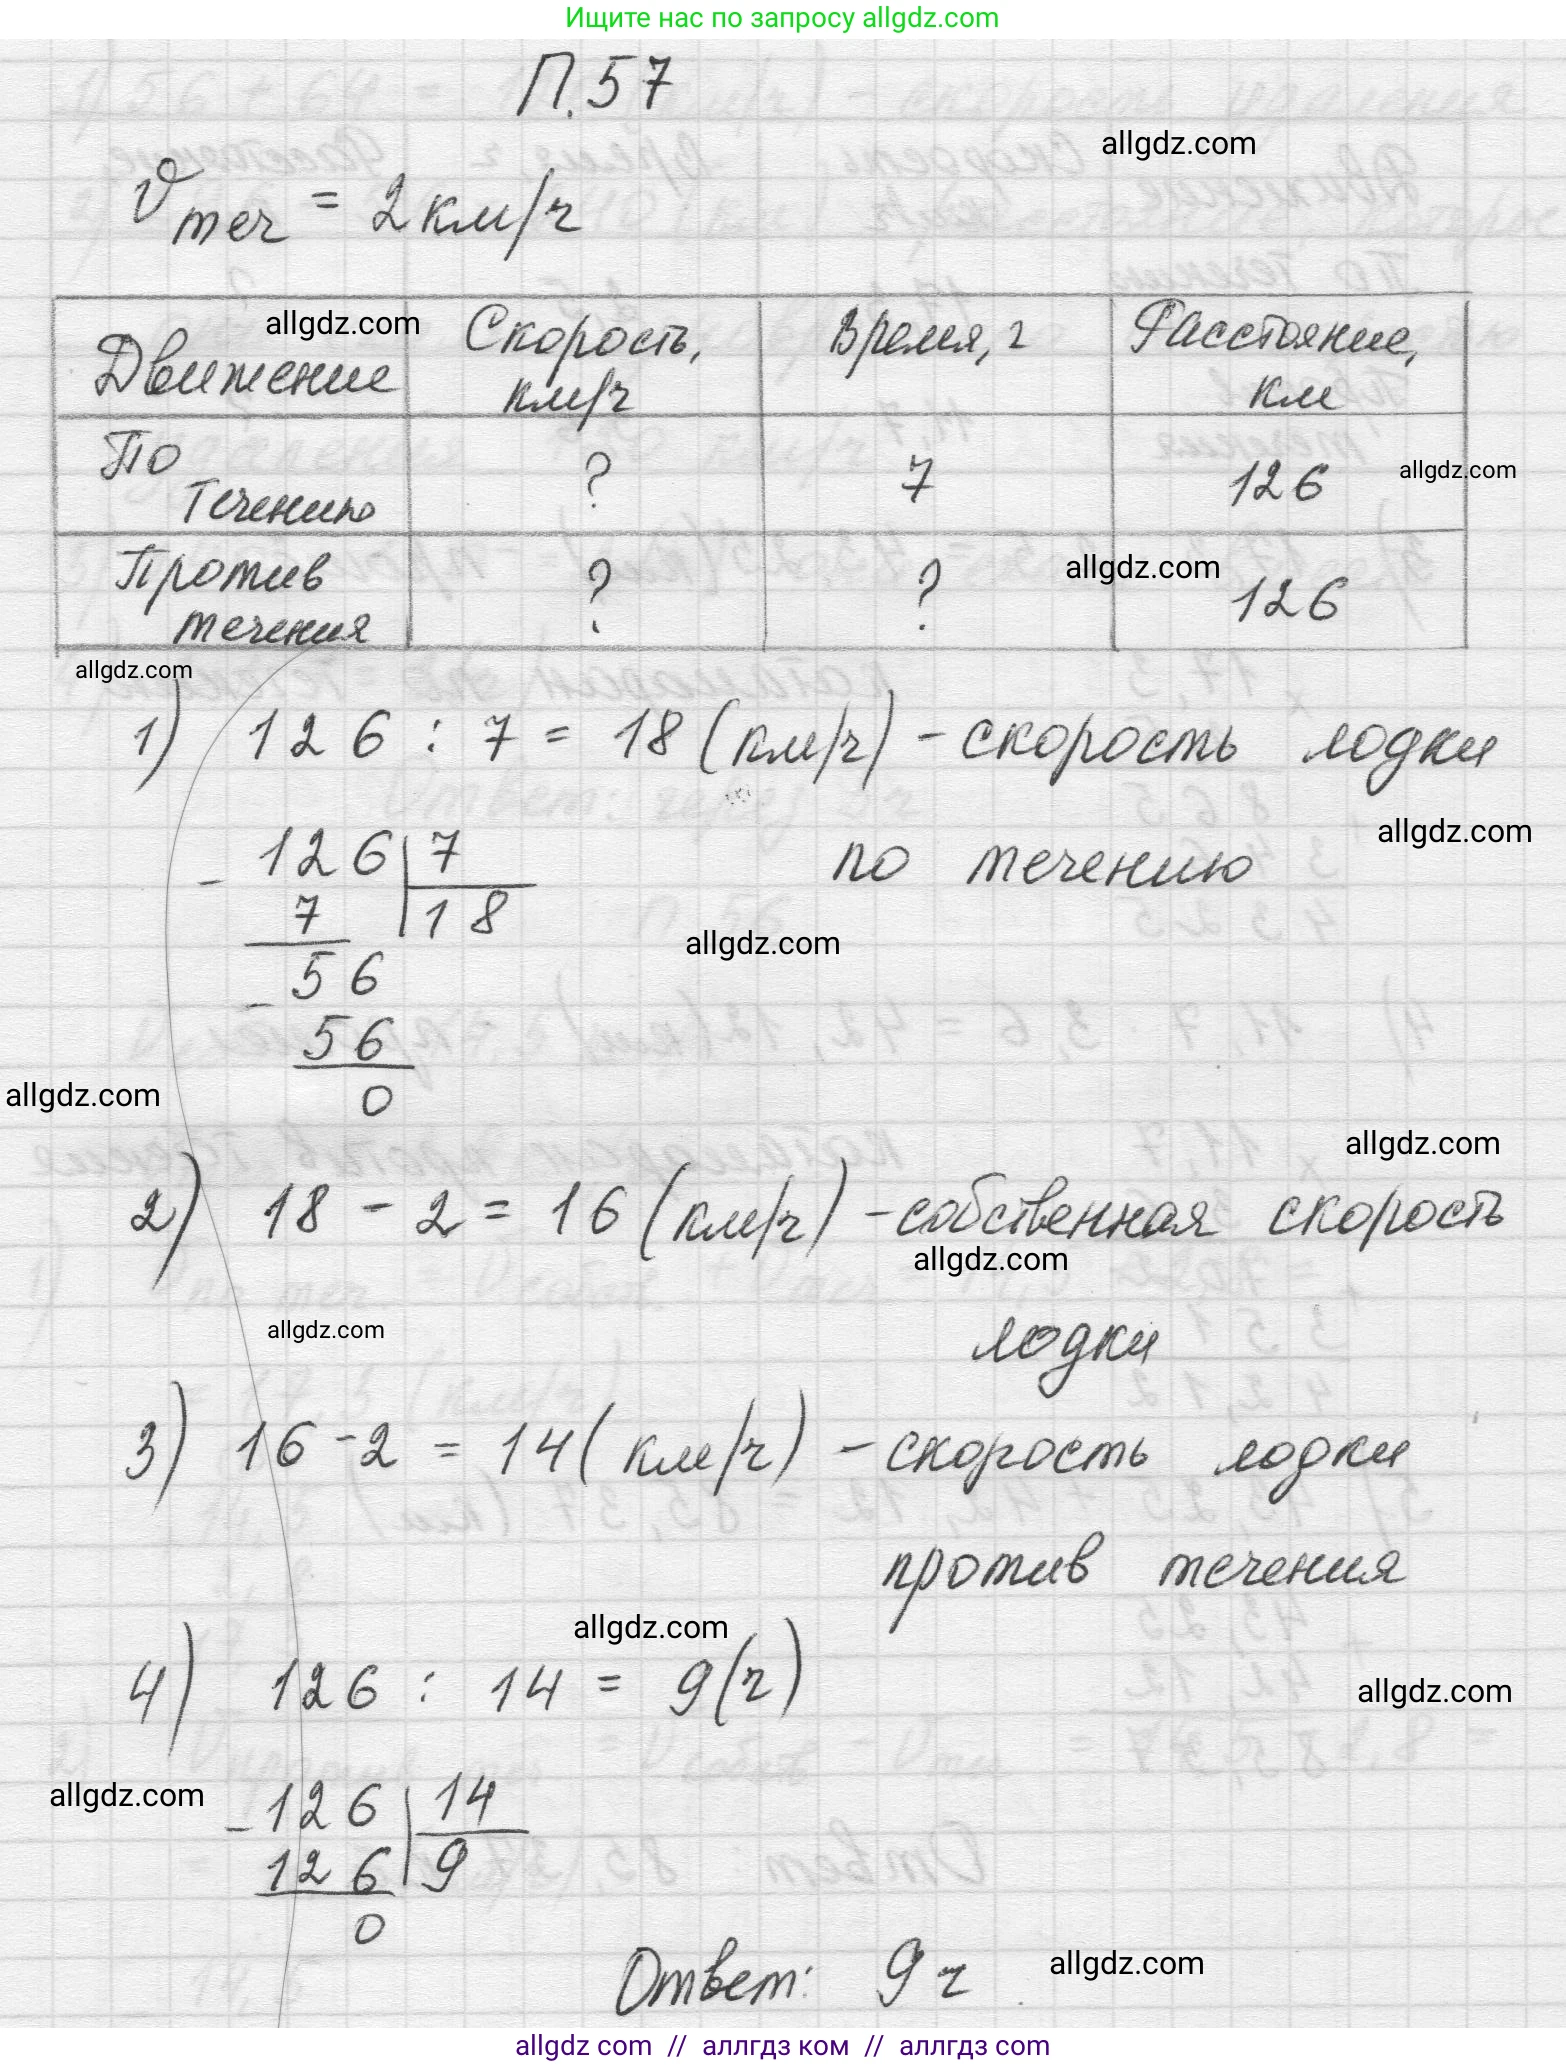 Ищите нас по запросу allgdz.com
П.57
allgdz.com
vтеч = 2 км/ч
allgdz.com
Движение | Скорость, км/ч | Время, ч | Расстояние, км
По течению | ? | 7 | 126
allgdz.com
Против течения | ? | ? | 126
allgdz.com
allgdz.com
1) 126 : 7 = 18 (км/ч) - скорость лодки
allgdz.com
по течению
- 126 | 7
7 | 18
allgdz.com
- 56
56
0
allgdz.com
allgdz.com
2) 18 - 2 = 16 (км/ч) - собственная скорость
allgdz.com
allgdz.com
лодки
3) 16 - 2 = 14 (км/ч) - скорость лодки
против течения
allgdz.com
4) 126 : 14 = 9 (ч)
allgdz.com
allgdz.com
- 126 | 14
126 | 9
0
Ответ: 9 ч
allgdz.com
allgdz com // аллгдз ком // аллгдз.com